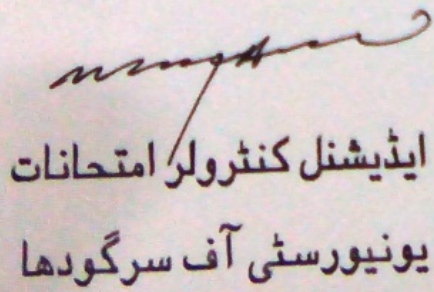 ایڈیشنل کنٹرولر امتحانات
یونیورسٹی آف سرگودها